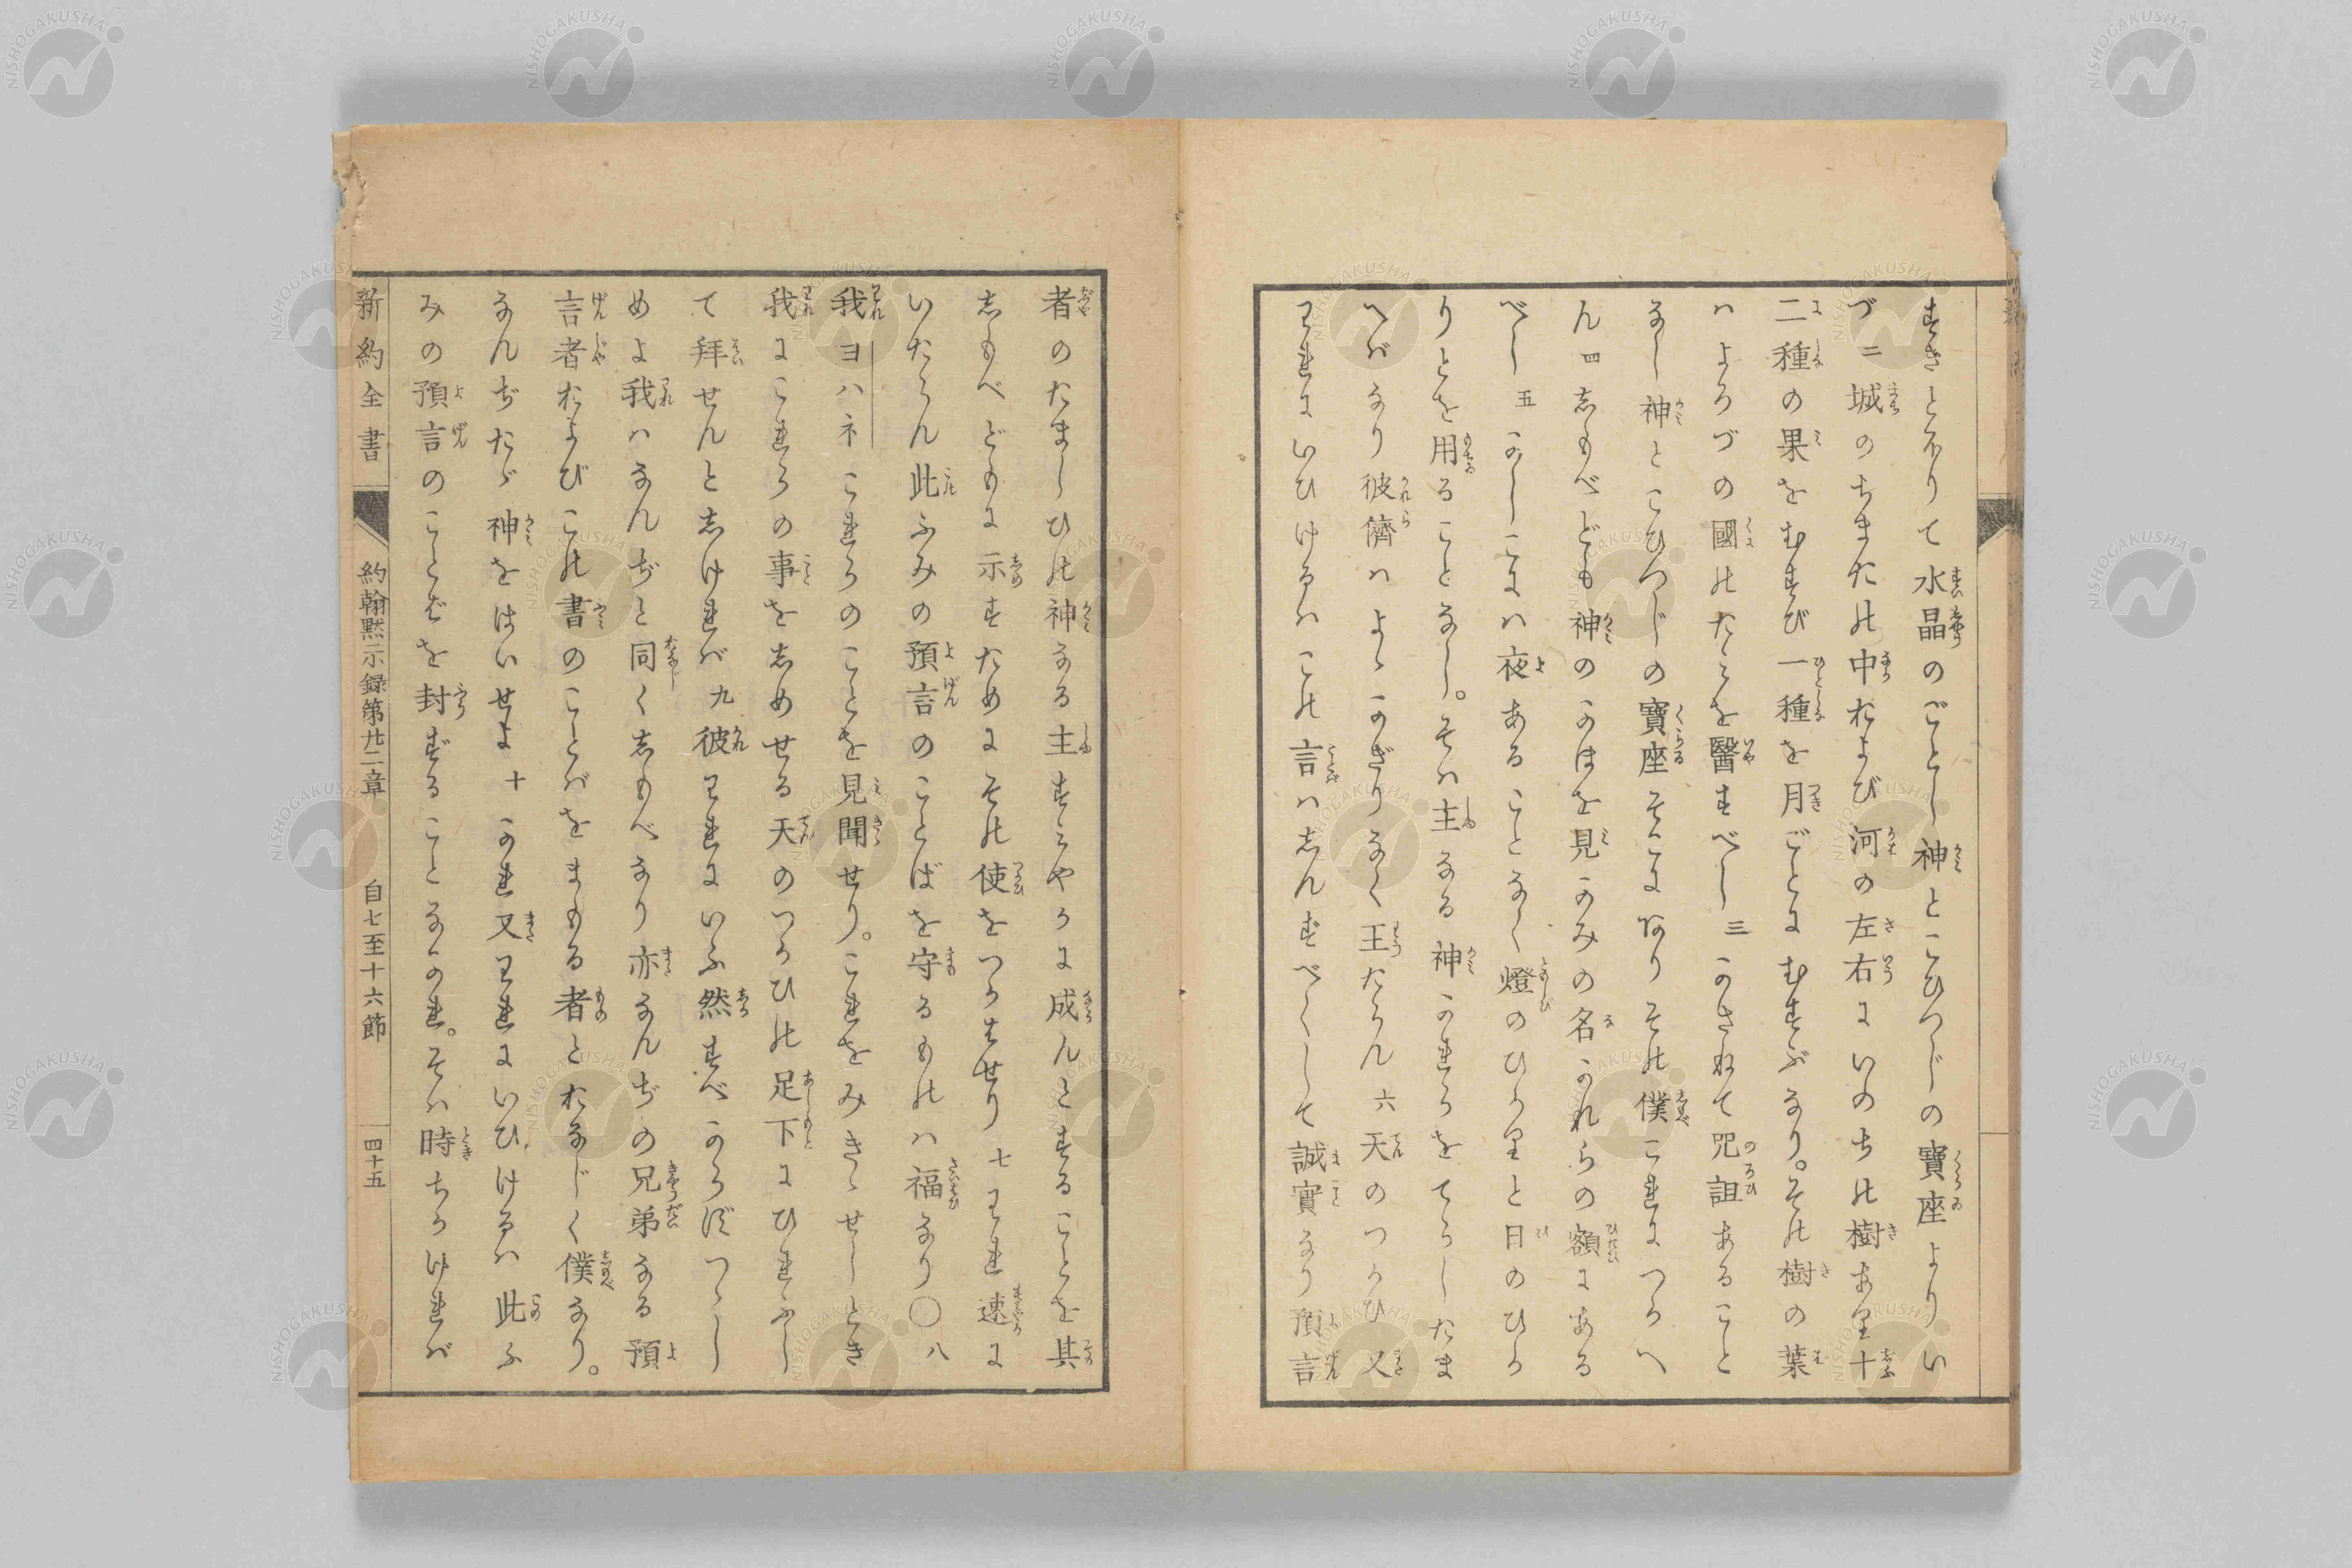 すきとほりて水晶のごとし神とこひつじの寶座よりい
づ二城のちまたの中および河の左右にいのちの樹あり十
二種の果をむすび一種を月ごとにむすぶなり。その樹の葉
ハよろづの國のたみを醫すべし三かさねて咒詛あること
なし神とこひつじの寶座そこにありその僕これにつかへ
ん四しもべども神のかほを見かみの名かれらの額にある
べし五かしこにハ夜あることなく燈のひかりと日のひか
りとを用ることなし。そハ主なる神かれらをてらしたま
へばなり彼儕ハよゝかぎりなく王たらん六天のつかひ又
われにいひけるハこの言ハしんずべくして誠實なり預言
者のたましひの神なる主すみやかに成んとすることを其
しもべどもに示すためにその使をつかはせり七われ速に
いたらん此ふみの預言のことばを守るものハ福なり〇八
我ヨハネこれらのことを見聞せり。これをみきゝせしとき
我にこれらの事をしめせる天のつかひの足下にひれふし
て拜せんとしければ九彼われにいふ然すべからずつゝし
めよ我ハなんぢと同くしもべなり亦なんぢの兄弟なる預
言者およびこの書のことばをまもる者とおなじく僕なり。
なんぢたゞ神をはいせよ十かれ又われにいひけるハ此ふ
みの預言のことばを封ずることなかれ。そハ時ちかければ
新約全書
約翰黙示録第廿二章
自七至十六節
四十五
NISHOGAKUSHA